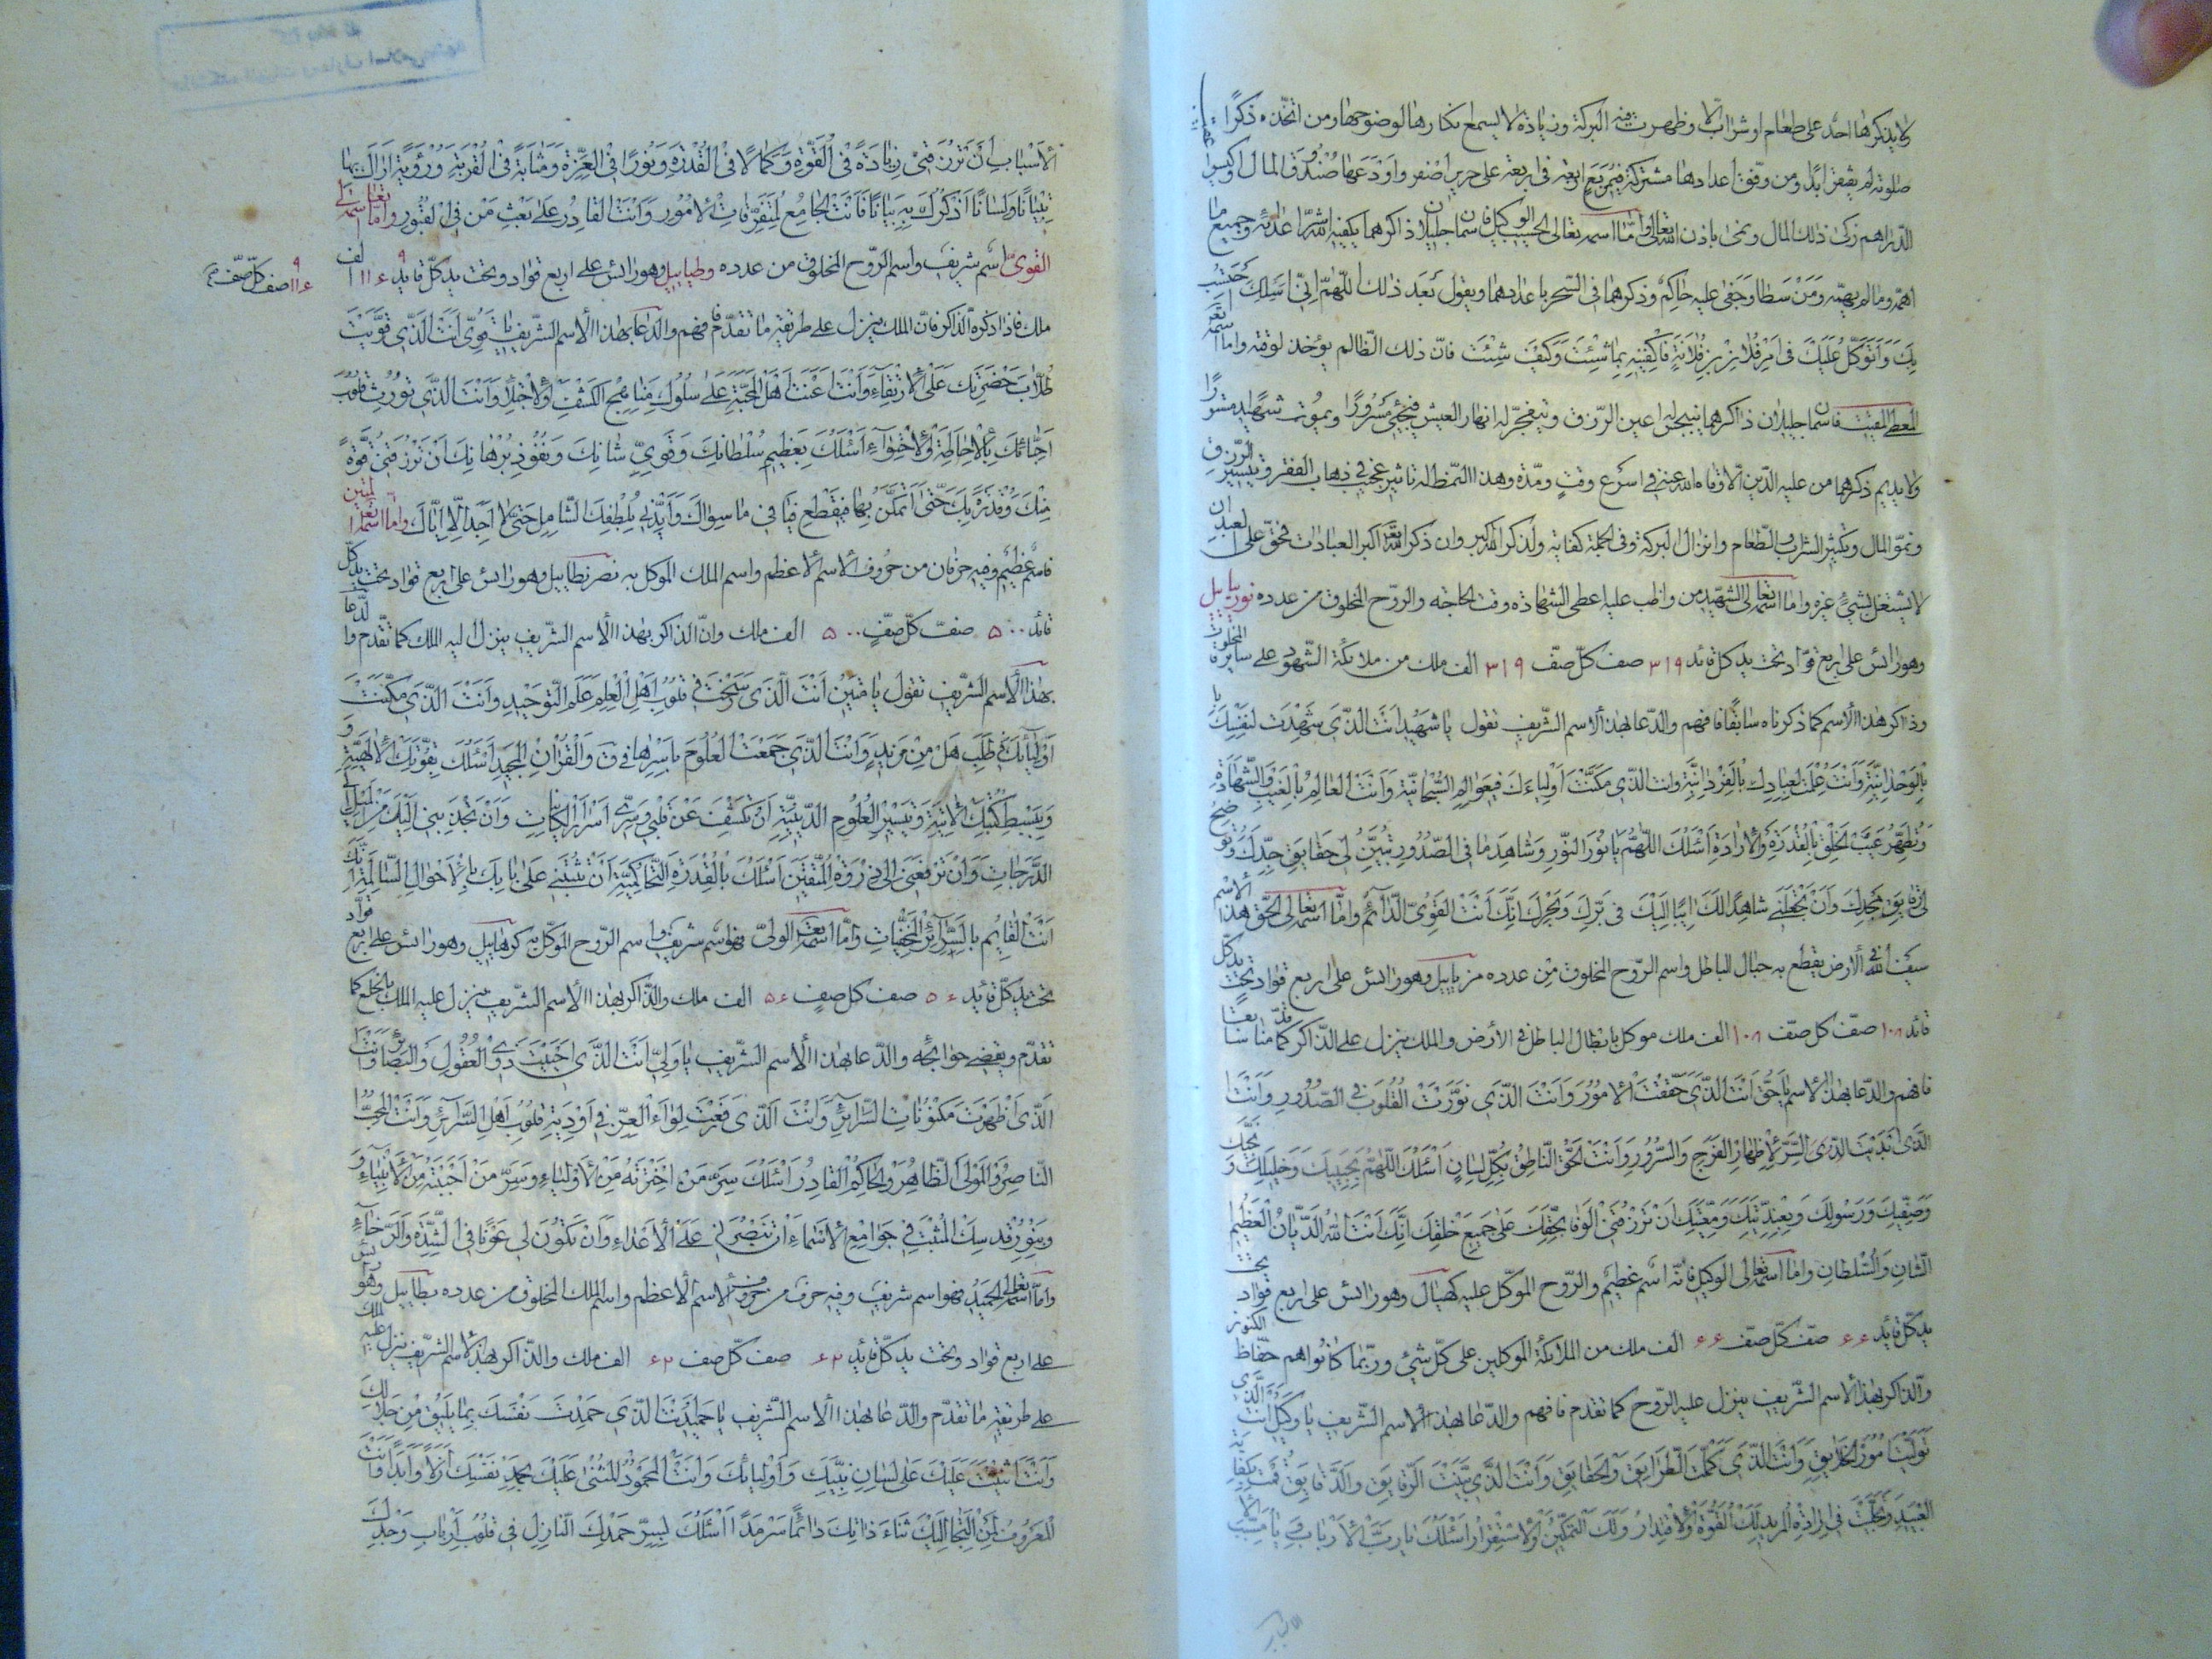 لا يذكرها احد على طعام او شراب الا وظهرت فيه البركة وزيادة لا يسمع نكارها لوضوحها ومن اتخذه ذكرا
صلوته لم يفقر ابدا ومن وفق اعدادها مشتركة في مربع اربعة في اربعة على حرير اصفر واودعها صندوق المال او كيس
الدراهم زكى ذلك المال ونمى باذن الله تعالى واما اسمه تعالى الحسيب الوكيل فاسمان جليلان ذاكرهما يكفيه الله شر اعدائه وجميع ما
اهمه وما لم يهمه ومن سطا وجفى عليه حاكم وذكرهما في السحر باعدادهما ويقول بعد ذلك اللهم اني اسئلك
بك واتوكل عليك في امر فلان بن فلانة فاكفنيه بما شئت وكيف شئت فان ذلك الظالم يؤخذ لوقته واما اسمه تع
المعطى المقيت فاسمان جليلان ذاكرهما ينبجس له اعين الرزق وتتفجر له انهار العيش فيجيئ مسرورا ويموت شهيدا
ولا يديم ذكرهما من عليه الدين الا وفاه الله عنه في اسرع وقت ومدة وهذا النمط له تاثير عجيب في ذهاب الفقر وتيسير الرزق
ونمو المال وتكثير الشراب والطعام وانزال البركة وفي الجملة كفاية ولذكر الله اكبر وان ذكر الله تع اكبر العبادات فحق على العبد ان
لا يشتغل بشئ غيره واما اسمه تعالى الشهيد من واظب عليه اعطى الشهادة وقت الحاجة والروح المخلوق من عدده نوريائيل
وهو رائس على اربع قواد تحت يد كل قائد ٣١٩ صف كل صف ٣١٩ الف ملك من ملائكة الشهود على ساير المخلوقات
وذاكر هذا الاسم كما ذكرناه سابقا فافهم والدعا بهذا الاسم الشريف تقول يا شهيد انت الذي شهدت لنفسك
بالوحدانية وانت علمت لعبادك بالفردانية وانت الذي مكنت اولياءك في عوالم السبحانية وانت العالم بالغيب والشهادة
وتظهر غيب الخلق بالقدرة والارادة اسئلك اللهم يا نور النور وشاهد ما في الصدور تبين لي حقايق جدك
لي رقايق مجدك وان تجعلني شاهدا لك ايبا اليك في برك وبحرك انك انت القوي الدائم واما اسمه تعالى الحق هذا الاسم
سيف الله في الارض يقطع به حبال الباطل واسم الروح المخلوق من عدده مزيائيل وهو رائس على اربع قواد تحت يد كل
قائد ١٠٨ صف كل صف ١٠٨ الف ملك موكل بابطال الباطل في الارض والملك ينزل على الذاكر كما قدمنا سابقا
فافهم والدعا بهذا الاسم يا حق انت الذي حققت الامور وانت الذي نورت القلوب في الصدور وانت
الذي ابديت الذي السر لاظهار الفرح والسرور وانت الحق الناطق بكل لسان اسئلك اللهم بحبيبك وخليلك و
وصفيك ورسولك وبعنديتك ومعيتك ان ترزقني الوفا بحقك على جميع خلقك انك انت الله الديان العظيم
الشان والسلطان واما اسمه تعالى الوكيل فانه اسم عظيم والروح الموكل عليه كهيال وهو رائس على اربع قواد تحت
يد كل قائد ٦٦ صف كل صف ٦٦ الف ملك من الملائكة الموكلين على كل شئ وربما كانوا هم حفاظ الكنوز
والذاكر بهذا الاسم الشريف ينزل عليه الروح كما تقدم فافهم والدعا بهذا الاسم الشريف يا وكيل انت الذي
توليت امور الخلايق وانت الذي كملت الطرايق والحقايق وانت الذي بينت الرقايق والدقايق
العبيد وتجليت في ارادة المريد لك القوة والاقتدار ولك التمكين والاستقرار اسئلك يا رب الارباب
الاسباب ان ترزقني زيادة في القوة وكمالا في القدرة ونورا في العزة ومثابة في القربة ورؤية اراك بها
تبيانا ولسانا اذكرك به بيانا فانت الجامع لمتفرقات الامور وانت القادر على بعث من في القبور واما اسمه تعالى
القوي اسم شريف واسم الروح المخلوق من عدده وطيائيل وهو رائس على اربع قواد وتحت يد كل قايد ١١٦ الف
١١٦ صف كل صف
ملك فاذا ذكره الذاكر فان الملك ينزل على طريقة ما تقدم فافهم والدعا بهذا الاسم الشريف يا قوي انت الذي قويت
طلاب حضرتك على الارتقاء وانت اعنت اهل المحبة على سلوك مناهج الكشف والاجتلاء وانت الذي نورت قلوب
احبائك بالاحاطة والاحتواء اسئلك بعظيم سلطانك وقوي شانك ونفوذ برهانك ان ترزقني قوة
منك وقدرة بك حتى اتمكن بها فيقطع فيافي ما سواك وايدني بلطفك الشامل حتى لا اجد الا اياك واما اسمه تع المتين
فاسم عظيم وفيه حرفان من حروف الاسم الاعظم واسم الملك الموكل به نصرنطائيل وهو رائس على اربع قواد تحت يد كل
قائد ٥٠٠ صف كل صف ٥٠٠ الف ملك وان الذاكر بهذا الاسم الشريف ينزل اليه الملك كما تقدم والدعا
بهذا الاسم الشريف تقول يا متين انت الذي رسخت في قلوب اهل العلم علم التوحيد وانت الذي مكنت
اوليائك في طلب هل من مزيد وانت الذي جمعت العلوم باسرها في ق والقران المجيد اسئلك بقوتك الالهية و
وببسيط كتبك الابية وتيسير العلوم الدينية ان تكشف عن قلبي وسري اسرار الكائنات وان تجذبني اليك
الدرجات وان ترفعني الى ذروة المتقين اسئلك بالقدرة ان تثبتني على بابك بالاحوال السالمة انك
انت القايم بالسرائر الخفيات واما اسمه تع الولي فهو اسم شريف واسم الروح الموكل به كوهائيل وهو رائس على اربع قواد
تحت يد كل قايد ٥٦ صف كل صف ٥٦ الف ملك والذاكر بهذا الاسم الشريف ينزل عليه الملك بالخلع كما
تقدم ويقضي حوائجه والدعا بهذا الاسم الشريف يا ولي انت الذي احببت ذوي العقول والبصائر وانت
الذي اظهرت مكنونات السرائر وانت الذي رفعت لواء العز في اودية قلوب اهل السرائر وانت المحب
الناصر والمولى الظاهر والحاكم القادر اسئلك سر من اخترته من الاولياء وسر من احببته من الانبياء و
وبنور قدسك المثبت في جوامع الاسماء ان تنصرني على الاعداء وان تكون لي عونا في الشدة والرخاء
واما اسمه تعالى الحميد فهو اسم شريف وفيه حرف من حروف الاسم الاعظم واسم الملك المخلوق من عدده بطائيل وهو رائس
على اربع قواد وتحت يد كل قايد ٦٢ صف كل صف ٦٢ الف ملك والذاكر بهذا الاسم الشريف ينزل عليه الملك
على طريقة ما تقدم والدعا بهذا الاسم الشريف يا حميد انت الذي حمدت نفسك بما يليق من جلالك
وانت اثنيت عليك على لسان نبيك واوليائك وانت المحمود المثنى عليك بحمد نفسك ازلا وابدا وانت
المعروف لمن التجا اليك ثناء ذاتك دائما سرمدا اسئلك بسر حمدك النازل في قلوب ارباب وجدك